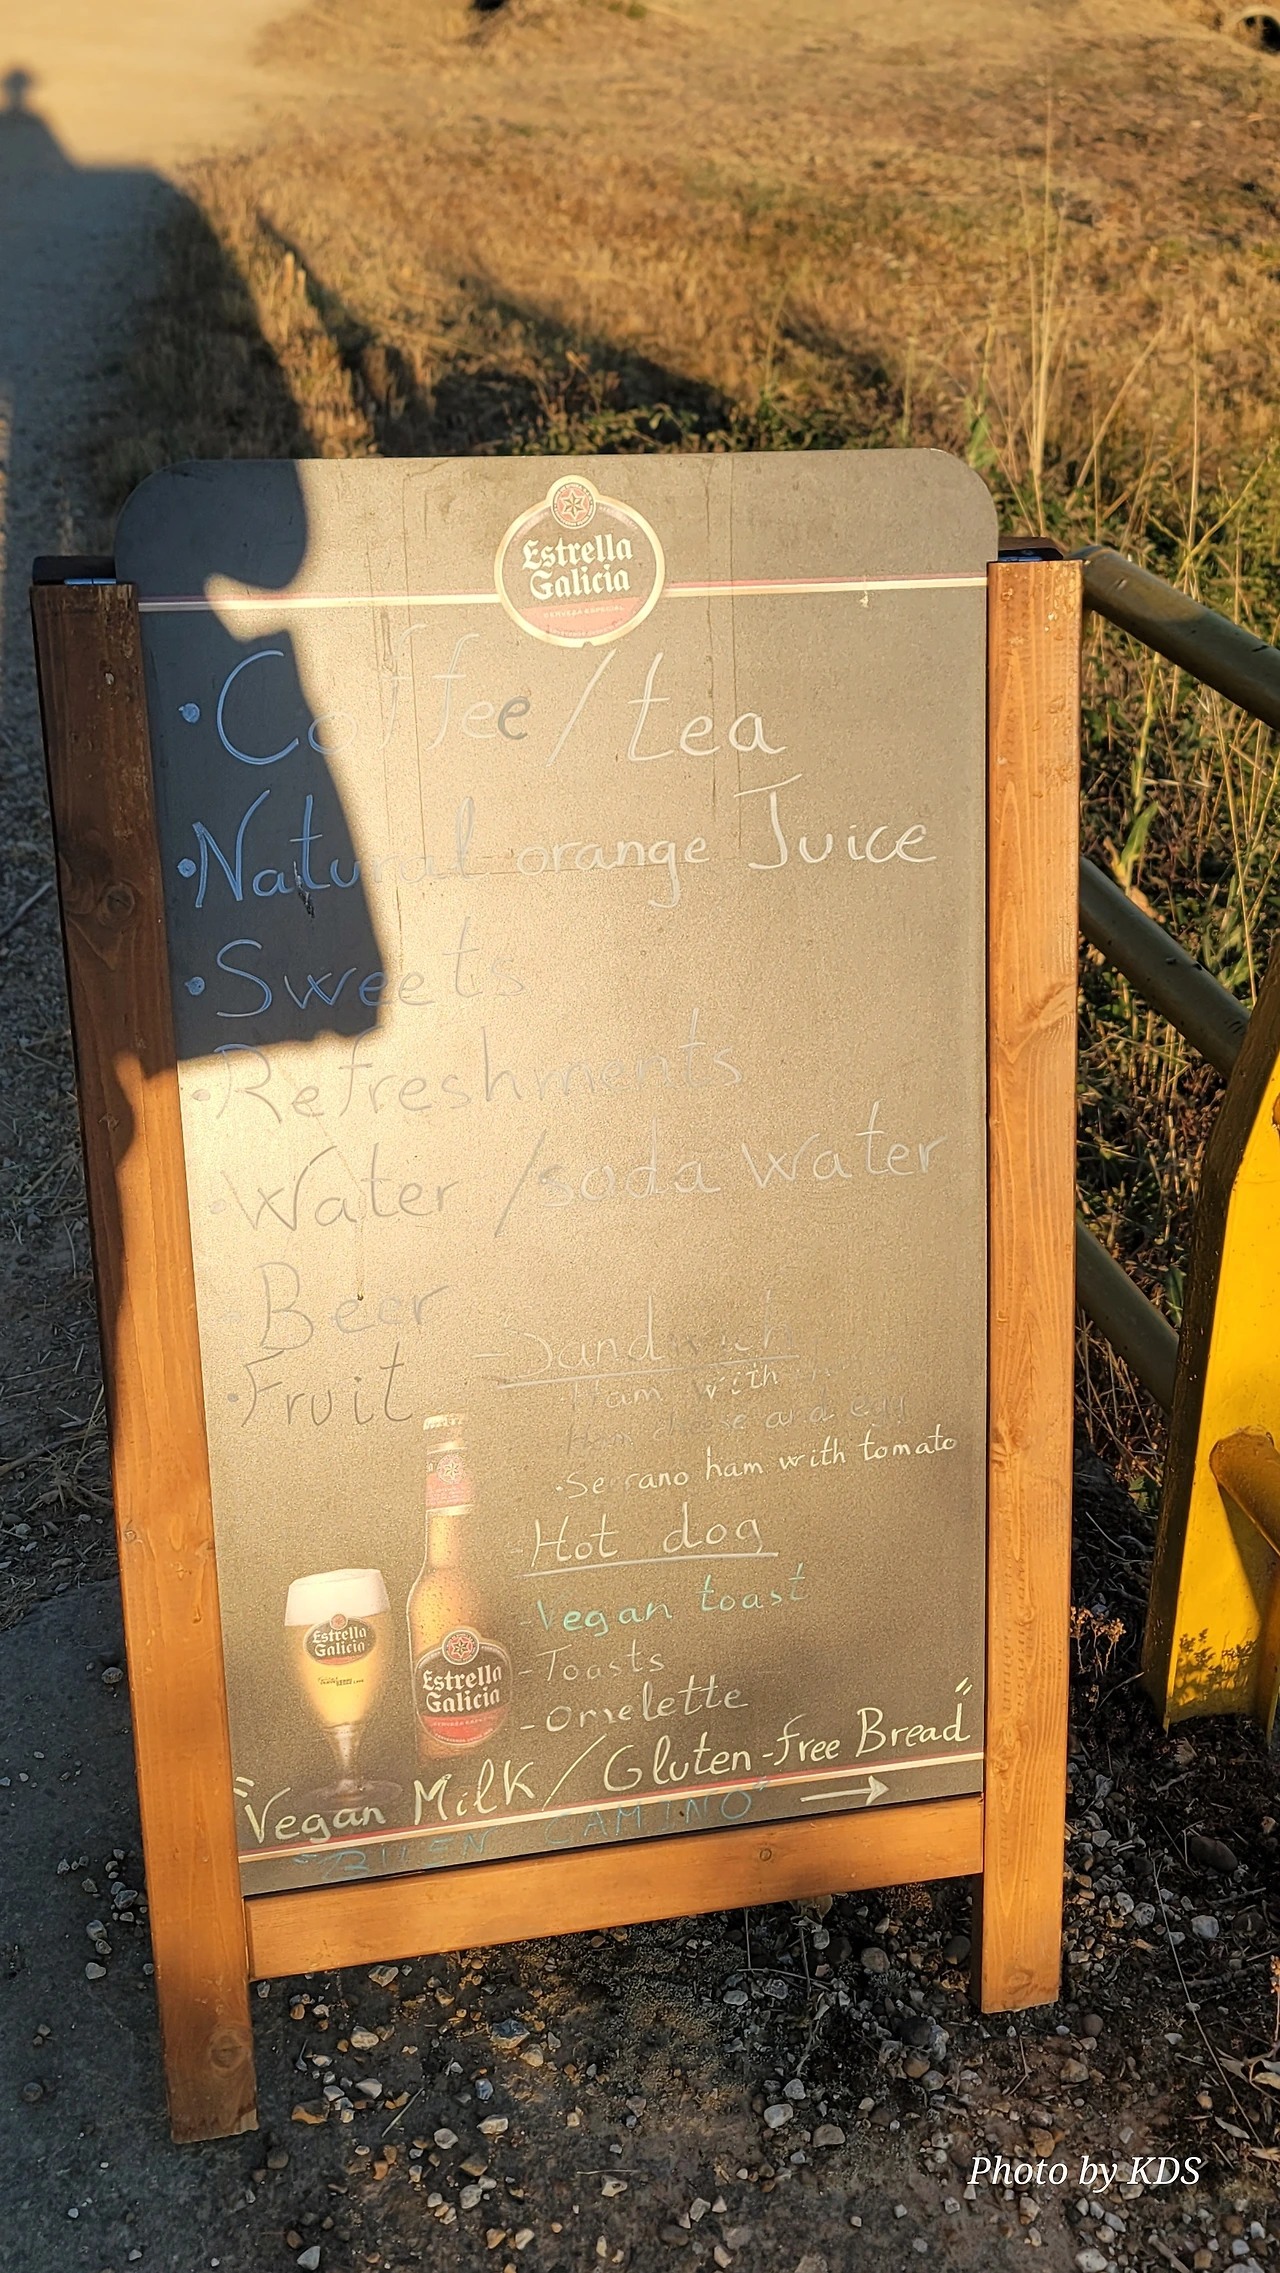 Estrella
Galicia
CERVEZA ESPECIAL
• Coffee / tea
• Natural orange Juice
• Sweets
• Refreshments
• Water / soda water
- Beer
• Fruit
- Sandwich
Ham with
Ham cheese and egg
• Serrano ham with tomato
- Hot dog
- Vegan toast
- Toasts
- Omelette
"Vegan Milk / Gluten-free Bread"
"BUEN CAMINO" →
Estrella
Galicia
Estrella
Galicia
Photo by KDS